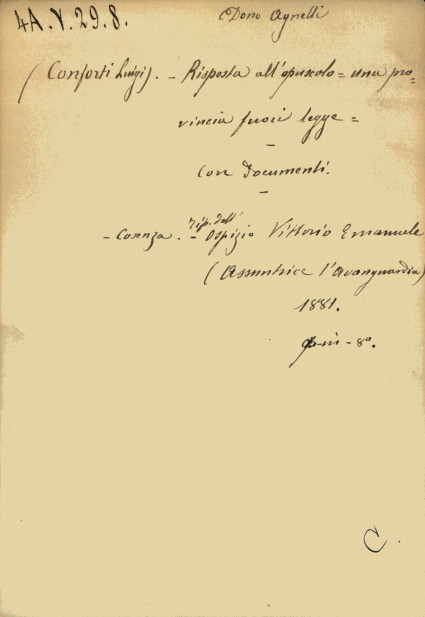 4A.V.29.8.
Dono Agnelli
(Conforti Luigi). - Risposta all'opuscolo = una pro-
vincia fuori legge =
-
Con Documenti.
-
- Cosenza. - tip. dell' Ospizio Vittorio Emanuele
(Assuntrice l'Avanguardia)
1881.
in - 8º.
C.